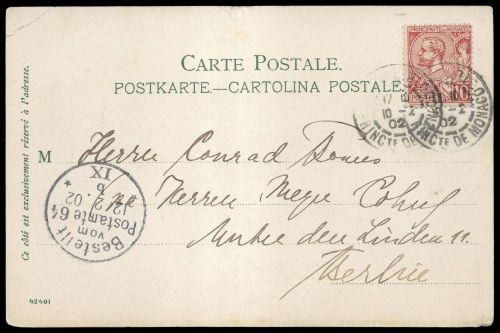 CARTE POSTALE.
POSTKARTE.—CARTOLINA POSTALE.
PRINCIPAUTÉ DE MONACO
10
02
02
PINCTE DE MONACO
Ce côté est exclusivement réservé à l'adresse.
M Herrn Conrad
Herren Meyer
Unter den Linden 11
Berlin
Bestellt
vom
Postamte 64
12.2.02
IX
42401